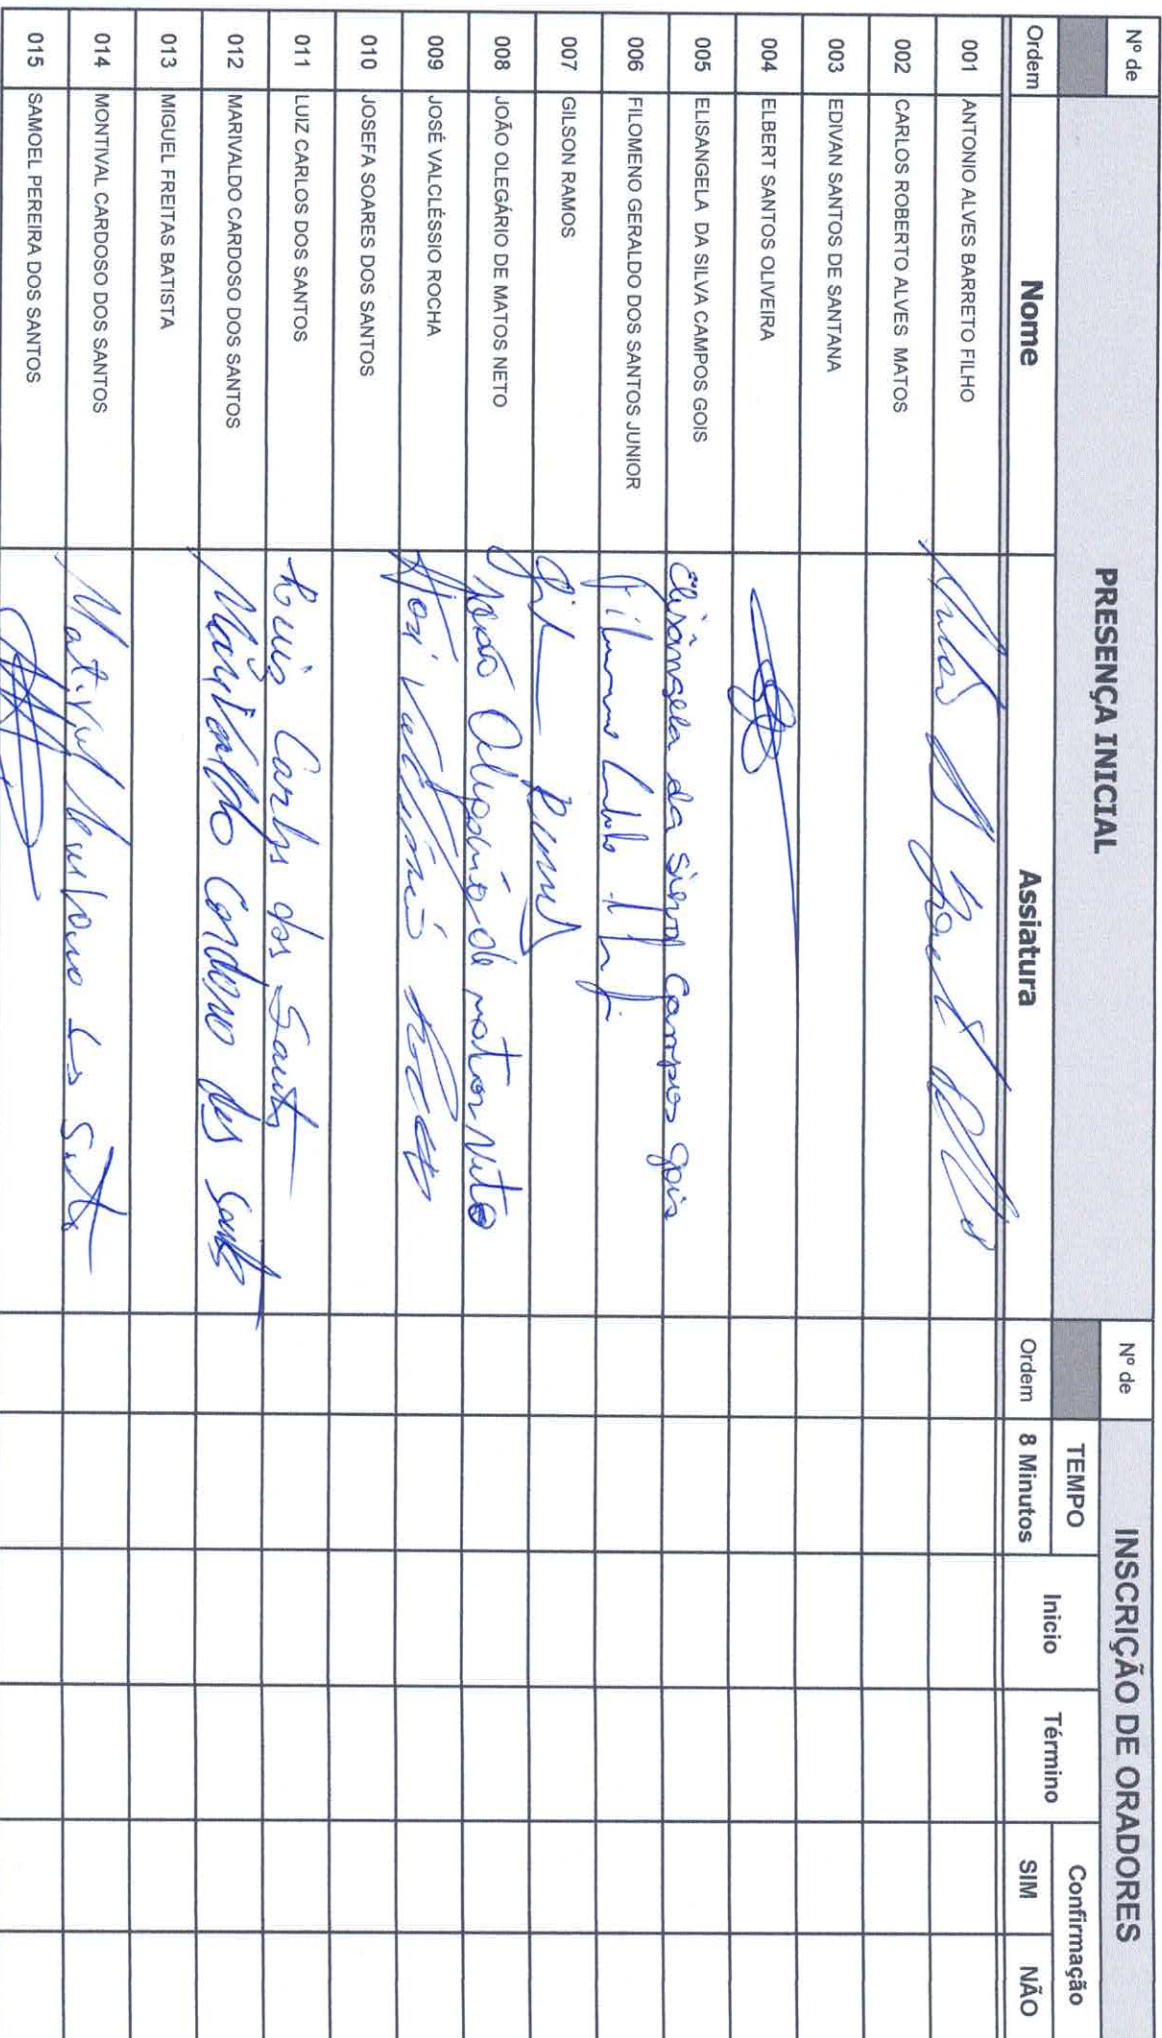 Nº de PRESENÇA INICIAL Nº de INSCRIÇÃO DE ORADORES
TEMPO Inicio Término Confirmação
Ordem Nome Assiatura Ordem 8 Minutos SIM NÃO
001 ANTONIO ALVES BARRETO FILHO
002 CARLOS ROBERTO ALVES MATOS
003 EDIVAN SANTOS DE SANTANA
004 ELBERT SANTOS OLIVEIRA
005 ELISANGELA DA SILVA CAMPOS GOIS Elisângela da Silva Campos Gois
006 FILOMENO GERALDO DOS SANTOS JUNIOR
007 GILSON RAMOS
008 JOÃO OLEGÁRIO DE MATOS NETO João Olegário de matos Neto
009 JOSÉ VALCLÉSSIO ROCHA José Valcléssio Rocha
010 JOSEFA SOARES DOS SANTOS
011 LUIZ CARLOS DOS SANTOS Luiz Carlos dos Santos
012 MARIVALDO CARDOSO DOS SANTOS Marivaldo Cardoso dos Santos
013 MIGUEL FREITAS BATISTA
014 MONTIVAL CARDOSO DOS SANTOS
015 SAMOEL PEREIRA DOS SANTOS